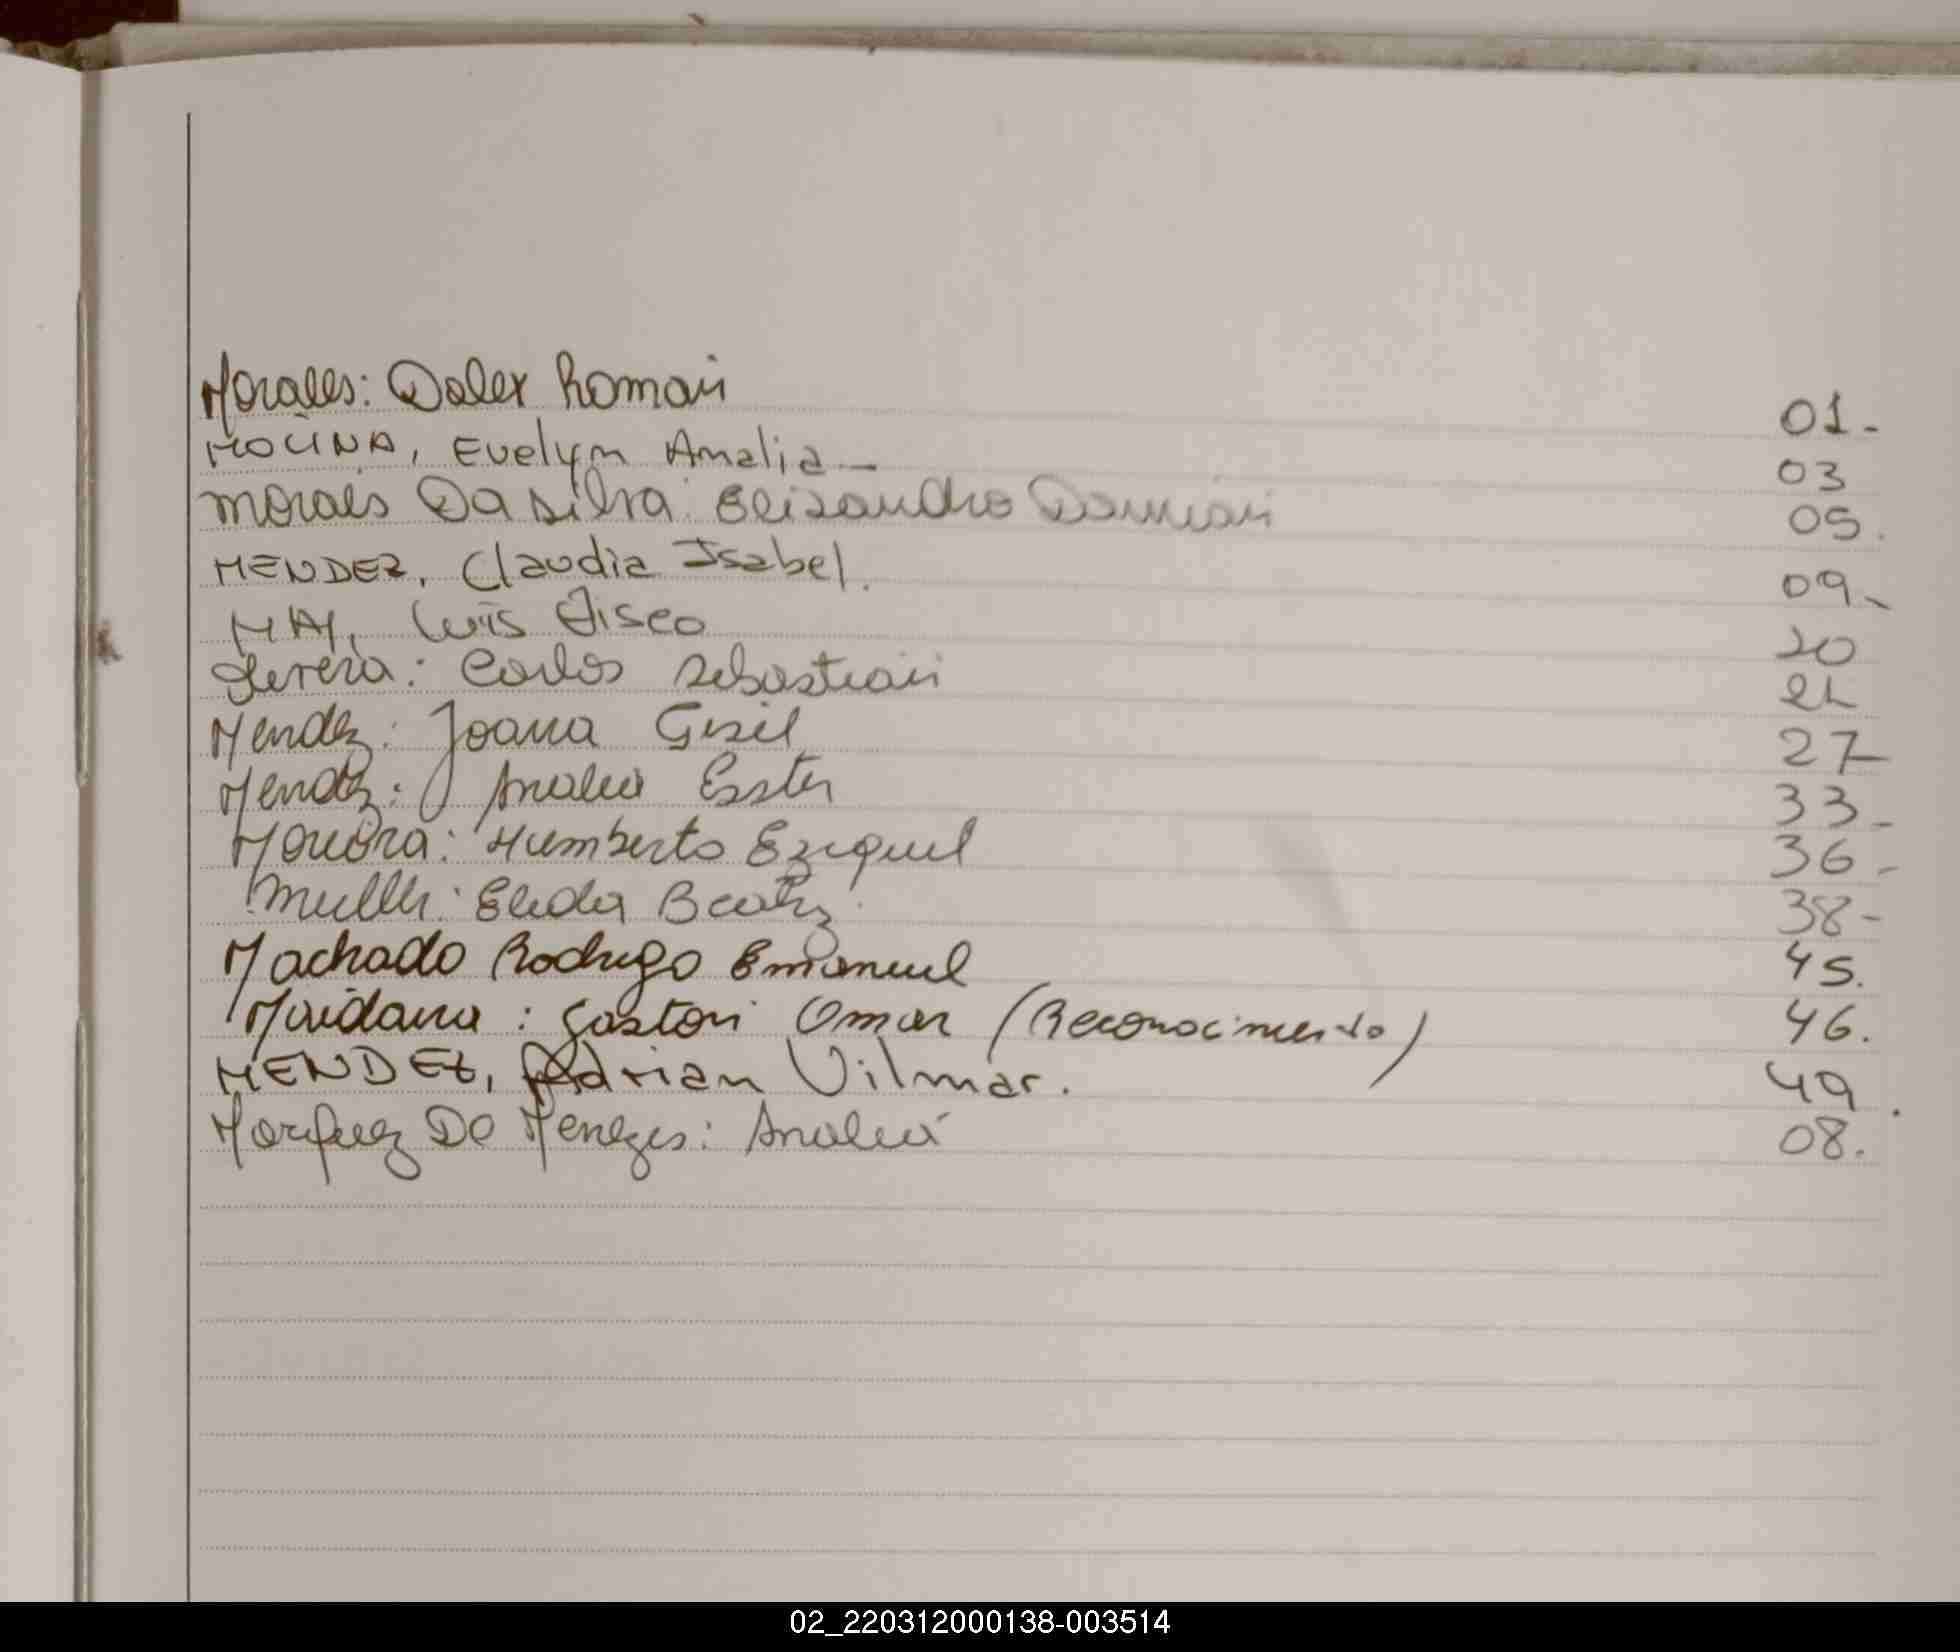 Morales: Dalex Roman 01.
MOLINA, Evelyn Analia 03
Morais Da Silva: Elizandro Damian 05.
MENDEZ, Claudia Isabel. 09-
Luis 20
Carlos Sebastian 21
Mendez: Joana Gisel 27-
Mendez: Analia Ester 33-
Humberto Ezequiel 36-
Muller: Elida Beatriz 38-
Machado Rodrigo Emanuel 45.
Maidana: Gaston Omar (Reconocimiento) 46.
MENDEZ, Adrian Vilmar. 49.
Marquez De Menezes: Analia 08.
02_220312000138-003514